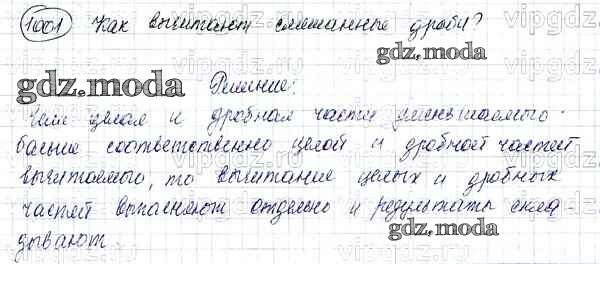 1001 Как вычитают смешанные дроби?
gdz.moda
gdz.moda Решение:
Если целая и дробная части уменьшаемого
больше соответственно целой и дробной частей
вычитаемого, то вычитание целых и дробных
частей выполняют отдельно и результаты скла
дывают.
gdz.moda